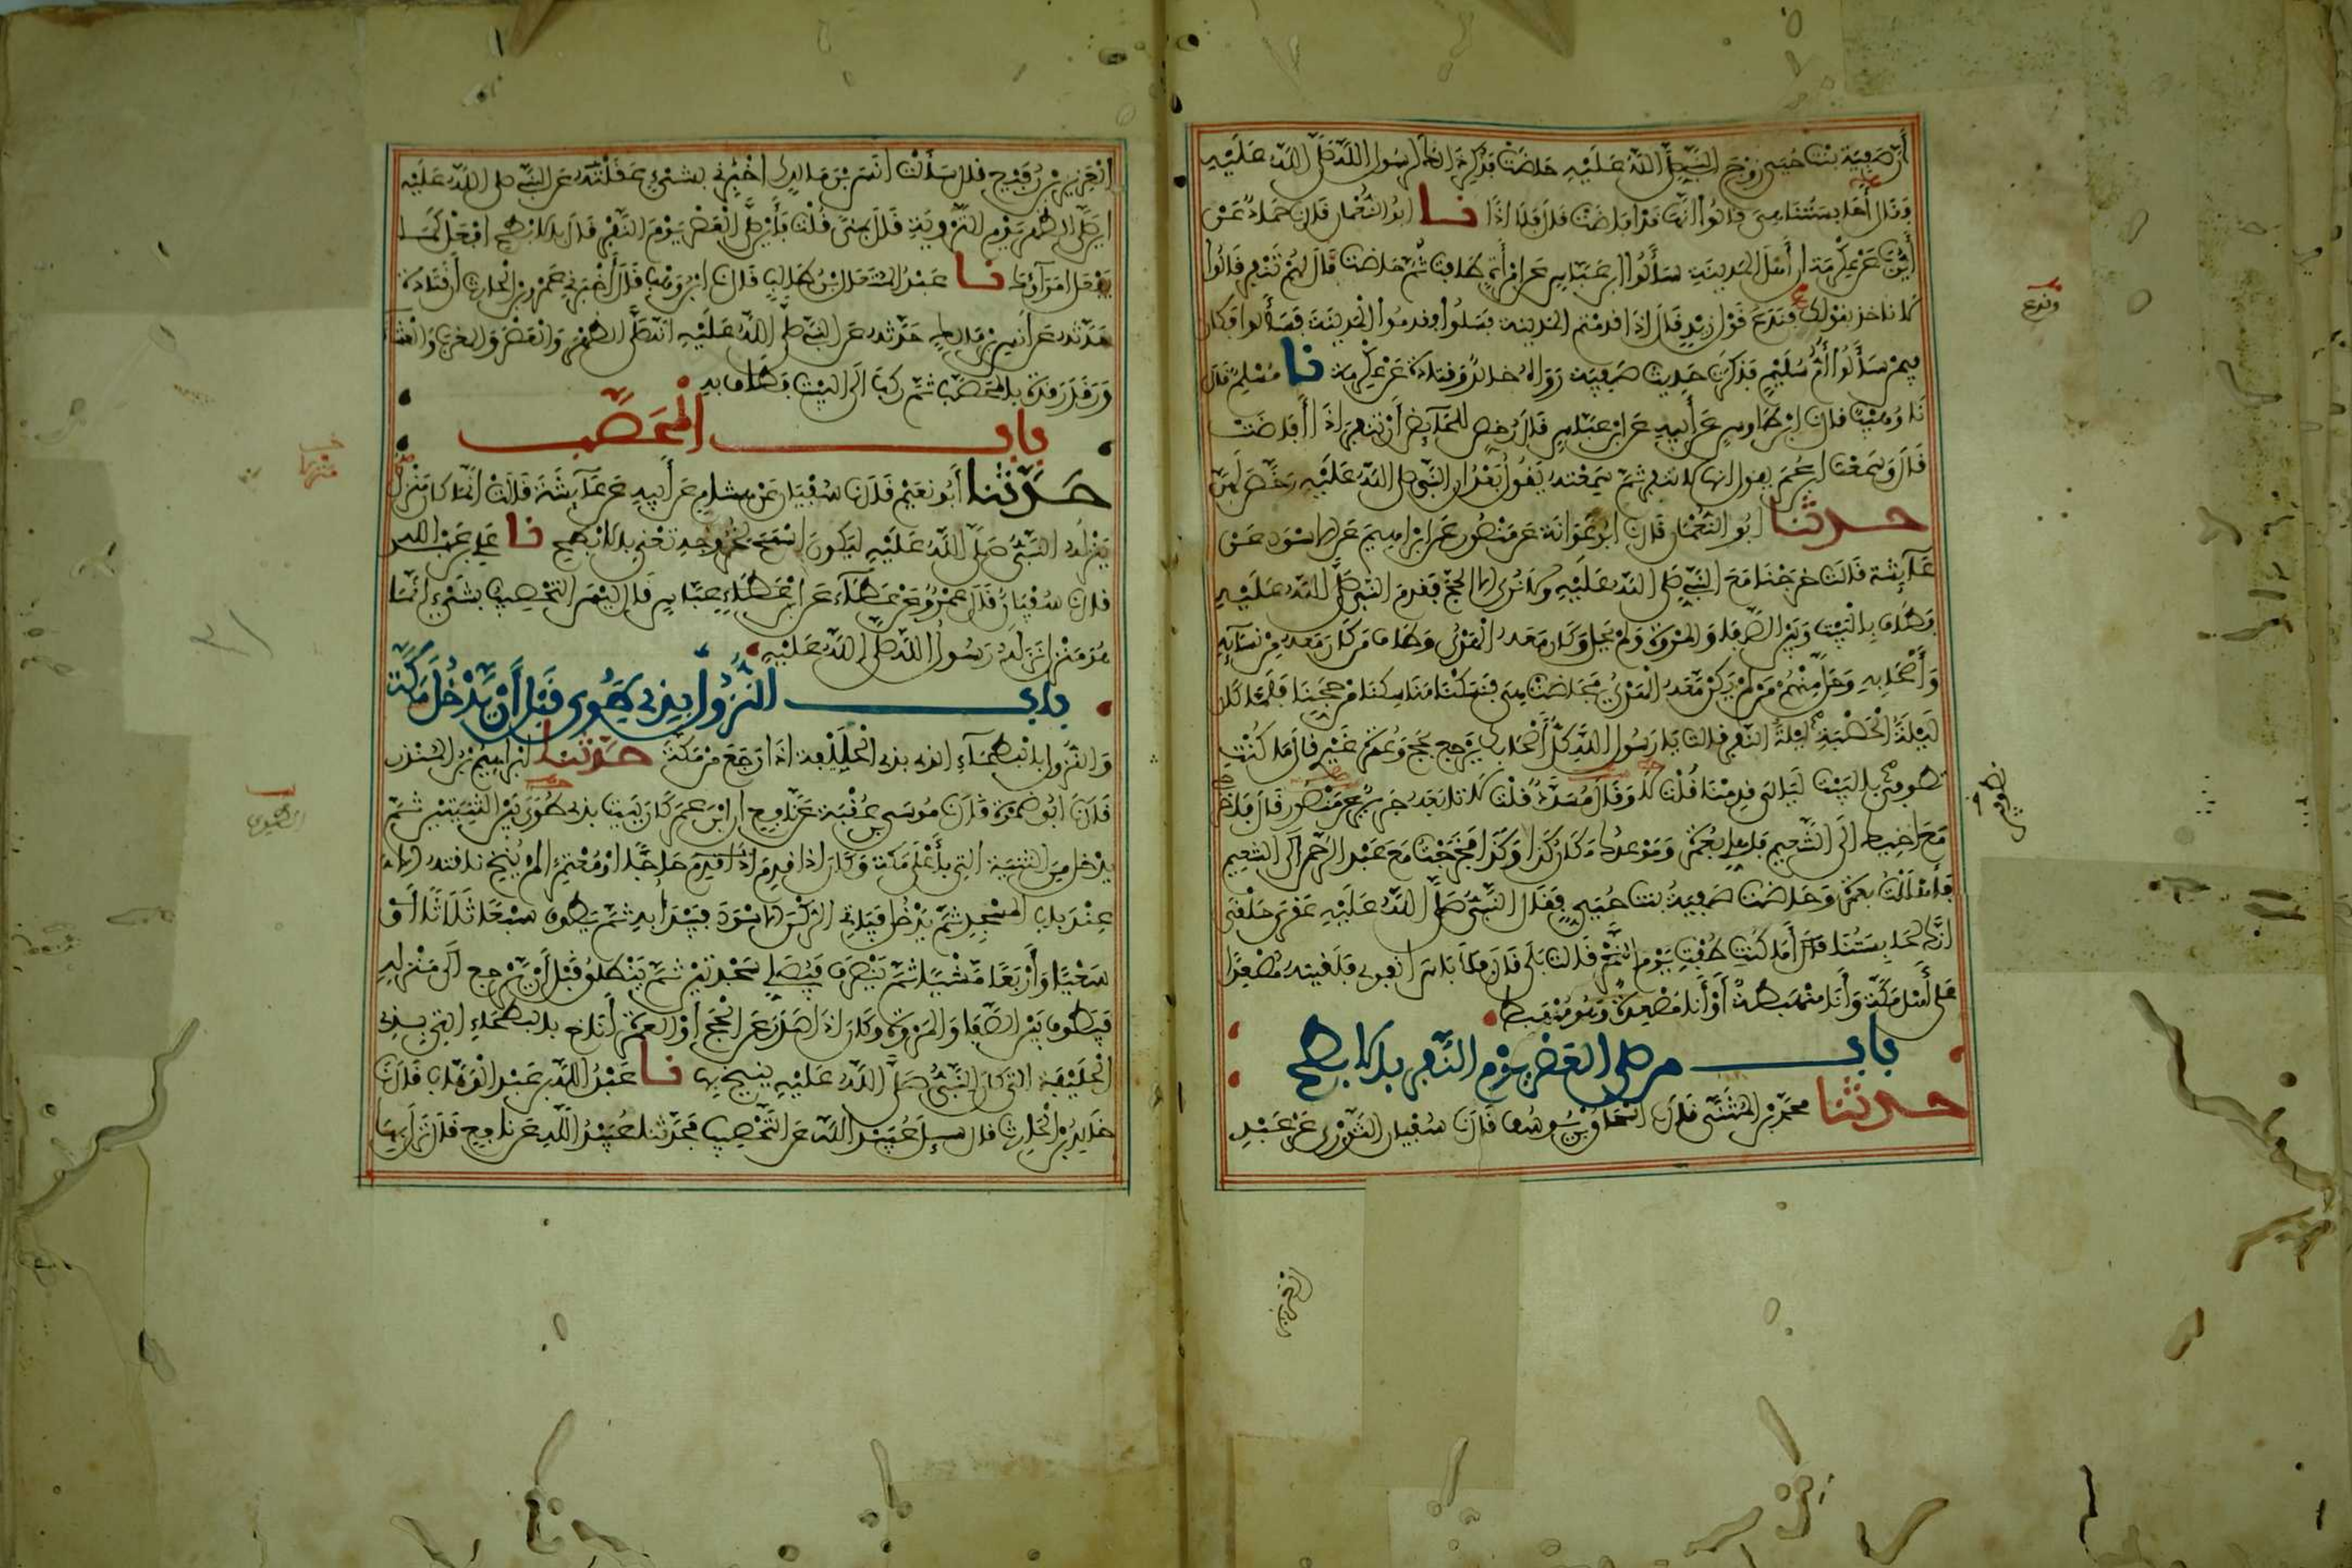 أن صفية بنت حيي زوج النبي صلى الله عليه حاضت فذكرت ذلك لرسول الله صلى الله عليه
فقال أحابستنا هي قالوا إنها قد أفاضت قال فلا إذا نا أبو النعمان قال نا حماد عن
أيوب عن عكرمة أن أهل المدينة سألوا ابن عباس عن امرأة طافت ثم حاضت قال لهم تنفر قالوا
لا ناخذ بقولك فندع قول زيد قال إذا قدمتم المدينة فسلوا فقدموا المدينة فسألوا فكان
فيمن سألوا أم سليم فذكرت حديث صفية رواه خالد وقتادة عن عكرمة نا مسلم قال
نا وهيب قال نا ابن طاوس عن أبيه عن ابن عباس قال رخص للحائض أن تنفر إذا أفاضت
قال وسمعت ابن عمر يقول إنها لا تنفر ثم سمعته يقول بعد إن النبي صلى الله عليه رخص لهن
حدثنا أبو النعمان قال نا أبو عوانة عن منصور عن إبراهيم عن الاسود عن
عائشة قالت خرجنا مع النبي صلى الله عليه ولا نرى إلا الحج فقدم النبي صلى الله عليه
فطاف بالبيت وبين الصفا والمروة ولم يحل وكان معه الهدي وطاف من كان معه من نسائه
وأصحابه وحل منهم من لم يكن معه الهدي فحاضت هي فنسكنا مناسكنا من حجنا فلما كان
ليلة الحصبة ليلة النفر قالت يا رسول الله كل أصحابك يرجع بحج وعمرة غيري قال ما كنت
تطوفي بالبيت ليالي قدمنا قلت لا وقال مسدد قلت لا تابعه جرير عن منصور قال فاخرجي
مع أخيك إلى التنعيم فاهلي بعمرة وموعدك مكان كذا وكذا فخرجت مع عبد الرحمن إلى التنعيم
فأهللت بعمرة وحاضت صفية بنت حيي فقال النبي صلى الله عليه عقرى حلقى
إنك لحابستنا أما كنت طفت يوم النحر قالت بلى قال فلا باس انفري فلقيته مصعدا
على أهل مكة وأنا منهبطة أو أنا مصعدة وهو منهبط
باب من صلى العصر يوم النفر بالابطح
حدثنا محمد بن المثنى قال نا إسحاق بن يوسف قال نا سفيان الثوري عن عبد
العزيز
وندع
تطوفين
العزيز بن رفيع قال سألت أنس بن مالك أخبرني بشيء عقلته عن النبي صلى الله عليه
أين صلى الظهر يوم التروية قال بمنى قلت فأين صلى العصر يوم النفر قال بالابطح افعل كما
يفعل امراؤك نا عبد المتعال بن طالب قال نا ابن وهب قال أخبرني عمرو بن الحارث أن قتادة
حدثه عن أنس بن مالك حدثه عن النبي صلى الله عليه أنه صلى الظهر والعصر والمغرب والعشاء
ورقد رقدة بالمحصب ثم ركب إلى البيت فطاف به
باب المحصب
حدثنا أبو نعيم قال نا سفيان عن هشام عن أبيه عن عائشة قالت إنما كان منزل
ينزله النبي صلى الله عليه ليكون أسمح لخروجه تعني بالابطح نا علي بن عبد الله
قال نا سفيان قال عمرو عن عطاء عن ابن عباس قال ليس التحصيب بشيء إنما
هو منزل نزله رسول الله صلى الله عليه
باب النزول بذي طوى قبل أن يدخل مكة
والنزول بالبطحاء التي بذي الحليفة إذا رجع من مكة حدثنا إبراهيم بن المنذر
قال نا أبو ضمرة قال نا موسى بن عقبة عن نافع أن ابن عمر كان يبيت بذي طوى بين الثنيتين ثم
يدخل من الثنية التي بأعلى مكة وكان إذا قدم حاجا أو معتمرا لم ينخ ناقته إلا
عند باب المسجد ثم يدخل فياتي الركن الاسود فيبدا به ثم يطوف سبعا ثلاثا
سعيا وأربعا مشيا ثم ينصرف فيصلي سجدتين ثم ينطلق قبل أن يرجع إلى منزله
فيطوف بين الصفا والمروة وكان إذا صدر عن الحج أو العمرة أناخ بالبطحاء التي بذي
الحليفة التي كان النبي صلى الله عليه ينيخ بها نا عبد الله بن عبد الوهاب قال نا
خالد بن الحارث قال سئل عبيد الله عن التحصيب فحدثنا عبيد الله عن نافع قال نزل بها
منزلا